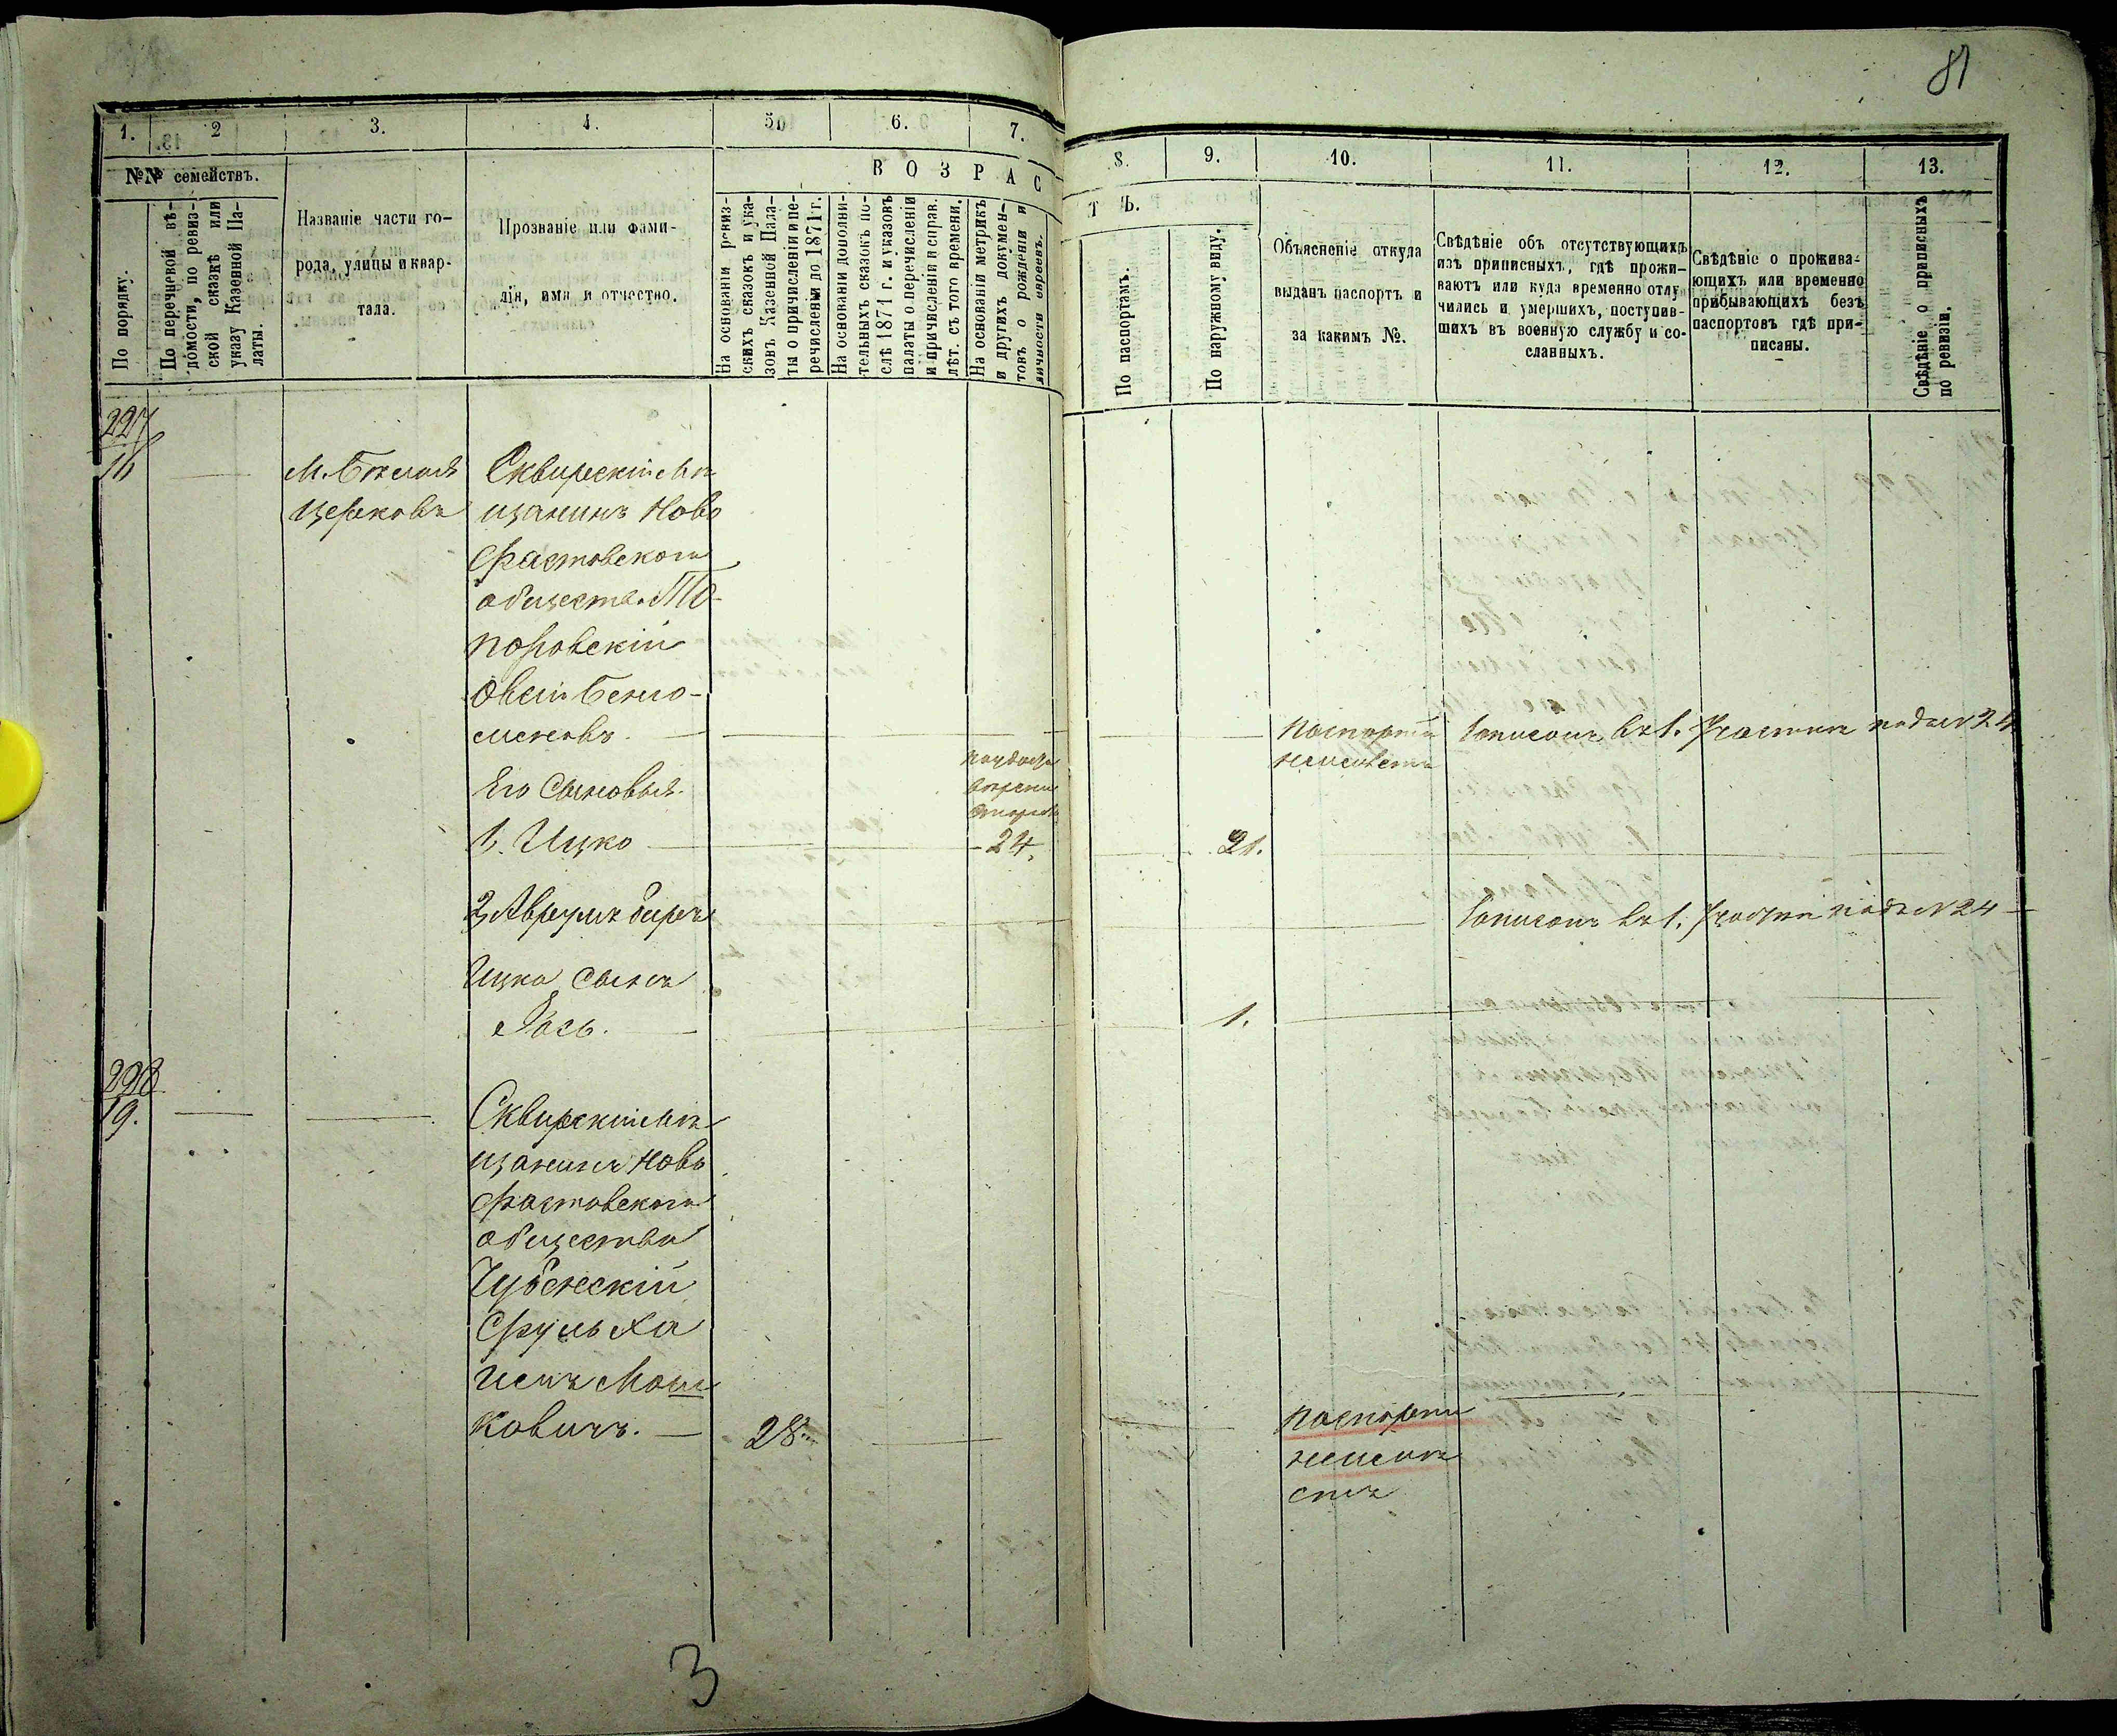 81
1. 2 3. 4. 5. 6. 7.
8. 9. 10. 11. 12. 13.
№№ семействъ.
В О З Р А С
Т Ъ.
По порядку.
По перечневой вѣ-
домости, по ревиз-
ской сказкѣ или
указу Казенной Па-
латы.
Названіе части го-
рода, улицы и квар-
тала.
Прозваніе или фами-
лія, имя и отчество.
На основаніи ревиз-
скихъ сказокъ и ука-
зовъ Казенной Пала-
ты о причисленіи и пе-
речисленіи до 1871 г.
На основаніи дополни-
тельныхъ сказокъ по-
слѣ 1871 г. и указовъ
палаты о перечисленіи
и причисленіи и справ.
лѣт. съ того времени.
На основаніи метрикъ
и другихъ докумен-
товъ о рожденіи и
личности евреевъ.
По паспортамъ.
По наружному виду.
Объясненіе откуда
выданъ паспортъ и
за какимъ №.
Свѣдѣніе объ отсутствующихъ
изъ приписныхъ, гдѣ прожи-
ваютъ или куда временно отлу-
чились и умершихъ, поступив-
шихъ въ военную службу и со-
сланныхъ.
Свѣдѣніе о прожива-
ющихъ или временно
прибывающихъ безъ
паспортовъ гдѣ при-
писаны.
Свѣдѣніе о приписныхъ
по ревизіи.
227
М. Бѣлая
Церковь
Сквирскій мѣ
щанинъ Ново
фастовскаго
общества То-
поровскій
Овсій Бенго-
меновъ.
Паспорта
неимѣетъ
Записанъ въ 1. Участкѣ подъ № 24
Его сыновья.
1. Ицко 24. 21.
2, Аврумъ Беръ
Записанъ въ 1. Участкѣ подъ № 24
Ицка сынъ
1.
228
19.
Сквирскій мѣ
щанинъ Ново
фастовскаго
общества
Чубенскій
Сруль Ха
имъ Мош
ковичъ. 28
Паспорта
неимѣ
етъ
3